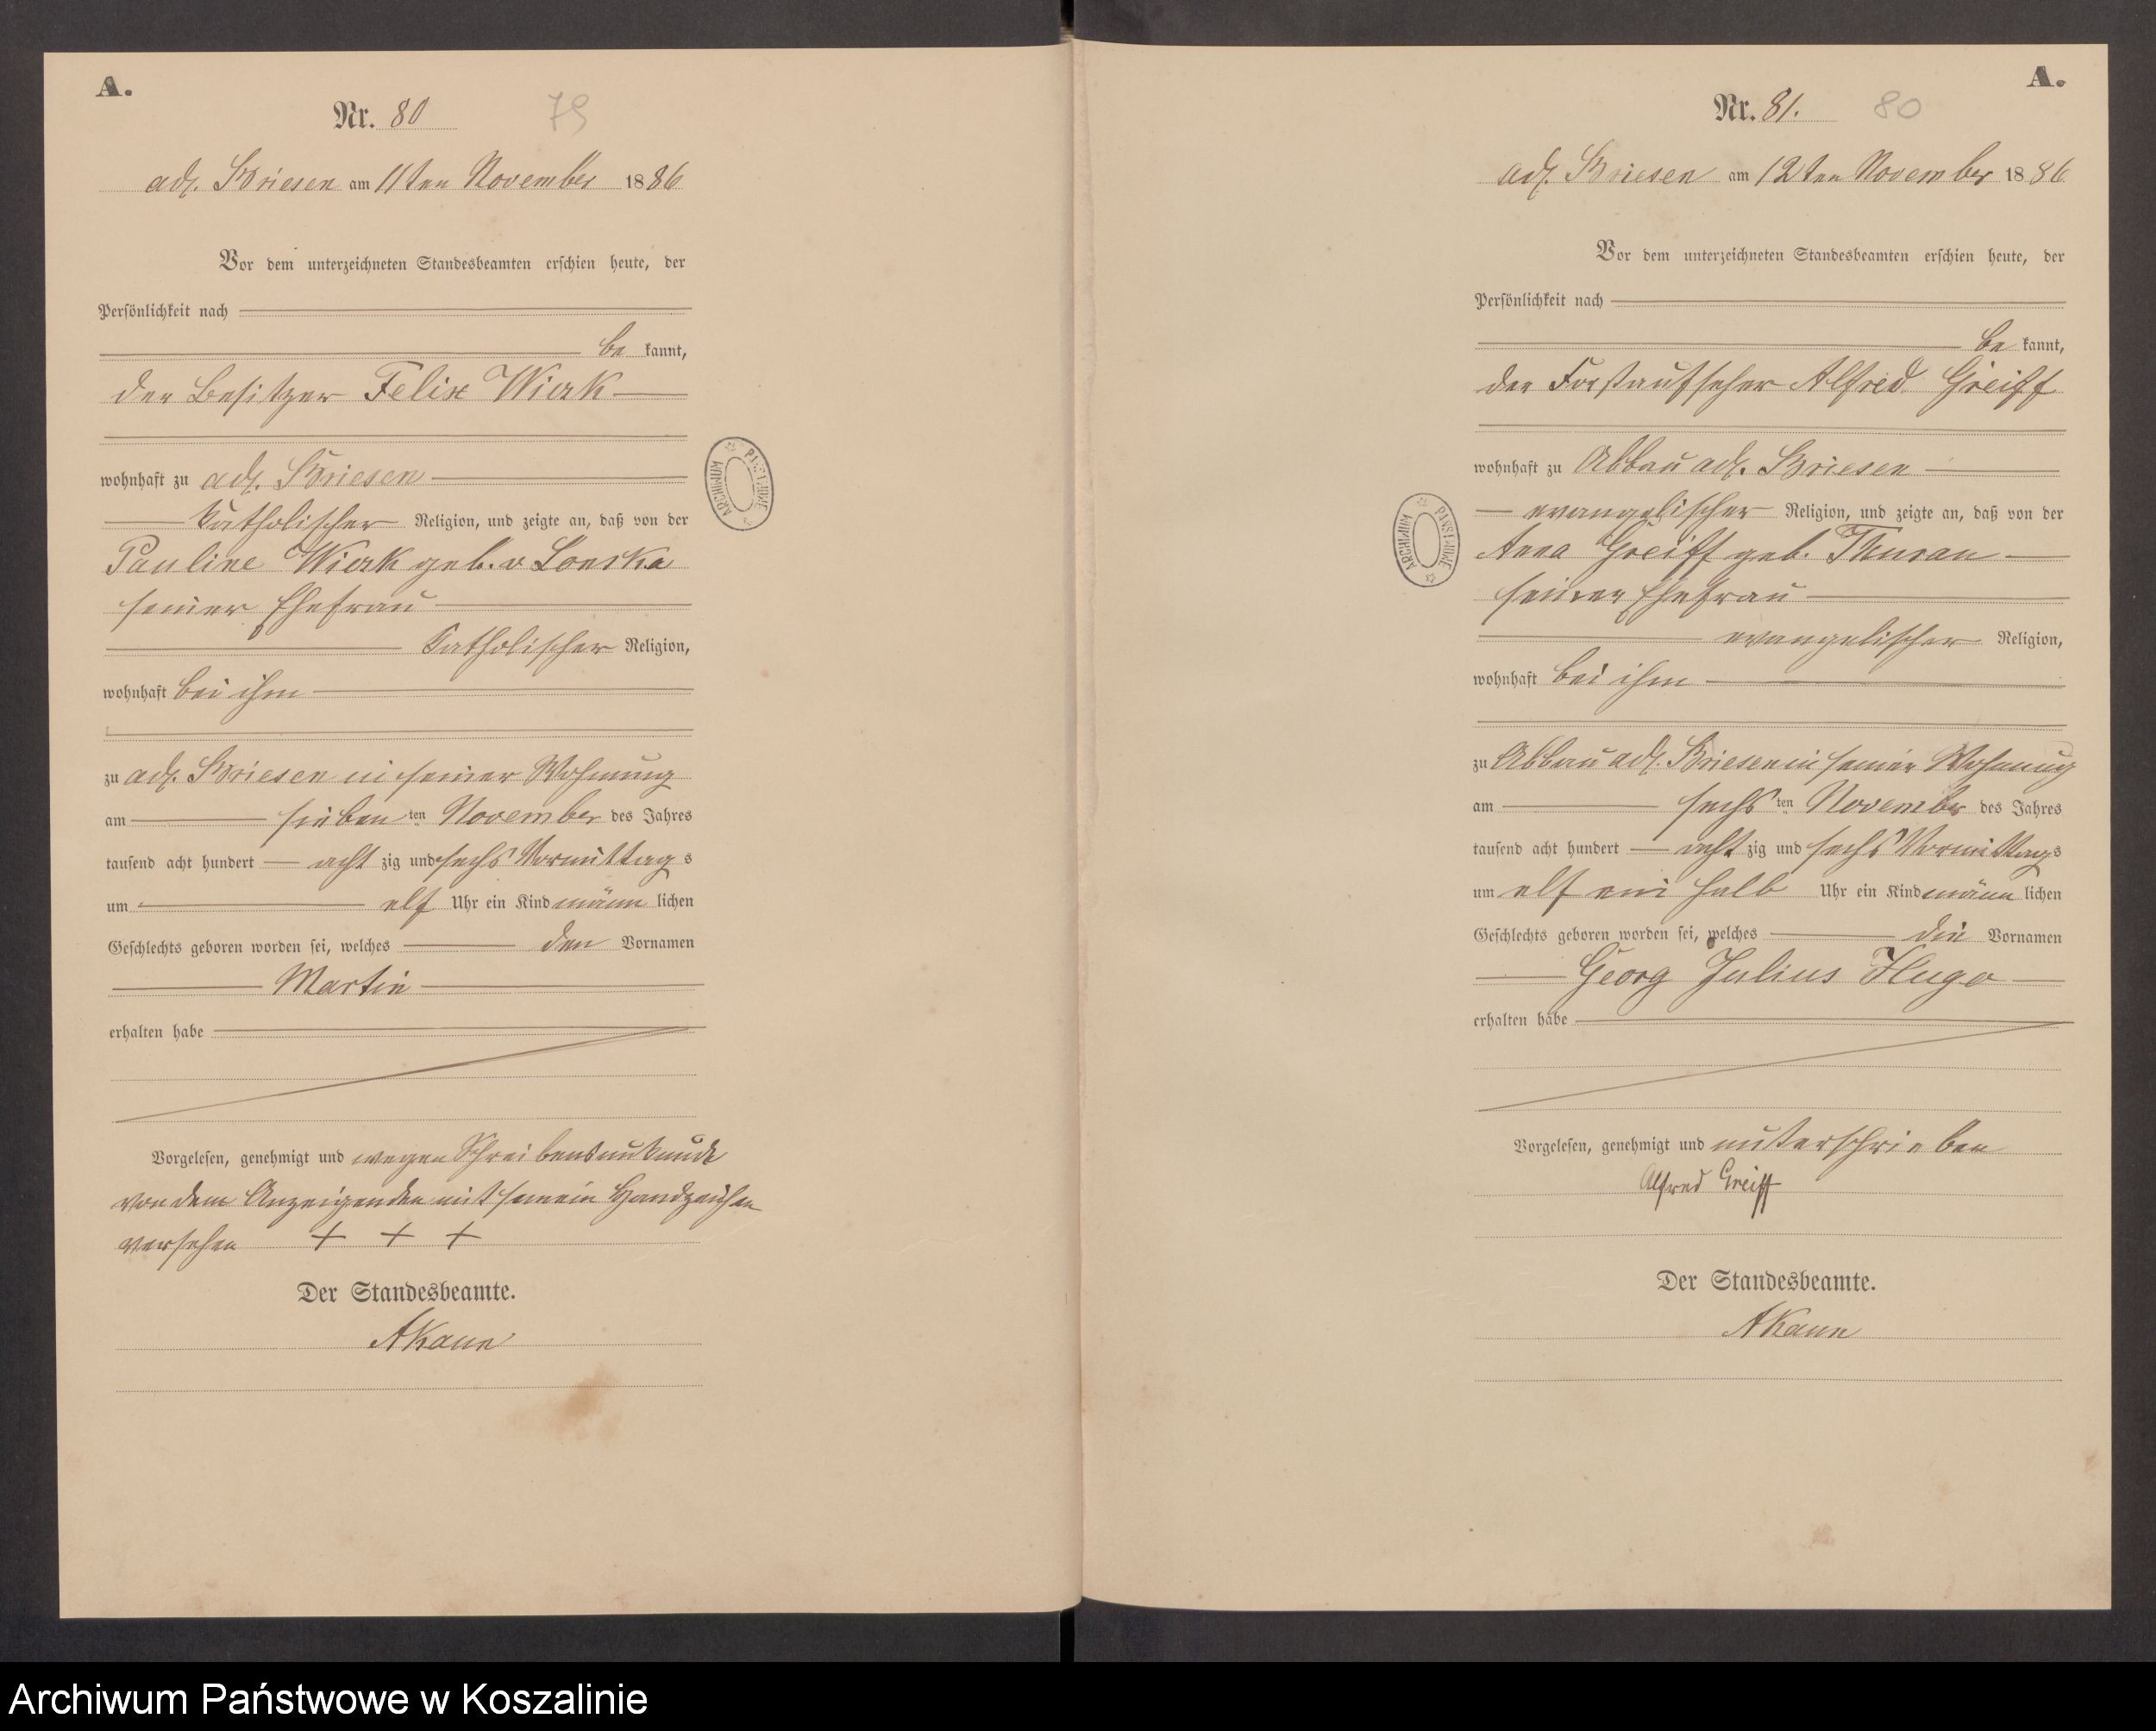 A.
Nr. 80
79
adl. Briesen am 11ten November 1886
Vor dem unterzeichneten Standesbeamten erschien heute, der
Persönlichkeit nach
be kannt,
der Besitzer Felix Wirk
wohnhaft zu adl. Briesen
katholischer Religion, und zeigte an, daß von der
Pauline geb. v
seiner Ehefrau
katholischer Religion,
wohnhaft bei ihm
zu adl. Briesen in seiner Wohnung
am sieben ten November des Jahres
tausend acht hundert acht zig und sechs Vormittag s
um elf Uhr ein Kind männ lichen
Geschlechts geboren worden sei, welches den Vornamen
Martin
erhalten habe
Vorgelesen, genehmigt und wegen Schreibensunkunde
von dem Anzeigenden mit seinem Handzeichen
versehen + + +
Der Standesbeamte.
A.
Nr. 81.
80
adl. Briesen am 12ten November 1886
Vor dem unterzeichneten Standesbeamten erschien heute, der
Persönlichkeit nach
be kannt,
der Forstaufseher Alfred Greiff
wohnhaft zu Abbau adl. Briesen
evangelischer Religion, und zeigte an, daß von der
Anna Greiff geb.
seiner Ehefrau
evangelischer Religion,
wohnhaft bei ihm
zu Abbau adl. Briesen in seiner Wohnung
am sechs ten November des Jahres
tausend acht hundert acht zig und sechs Vormittags
um elf ein halb Uhr ein Kind männ lichen
Geschlechts geboren worden sei, welches die Vornamen
Georg Julius Hugo
erhalten habe
Vorgelesen, genehmigt und unterschrieben
Alfred Greiff
Der Standesbeamte.
ARCHIWUM PAŃSTWOWE
ARCHIWUM PAŃSTWOWE
Archiwum Państwowe w Koszalinie